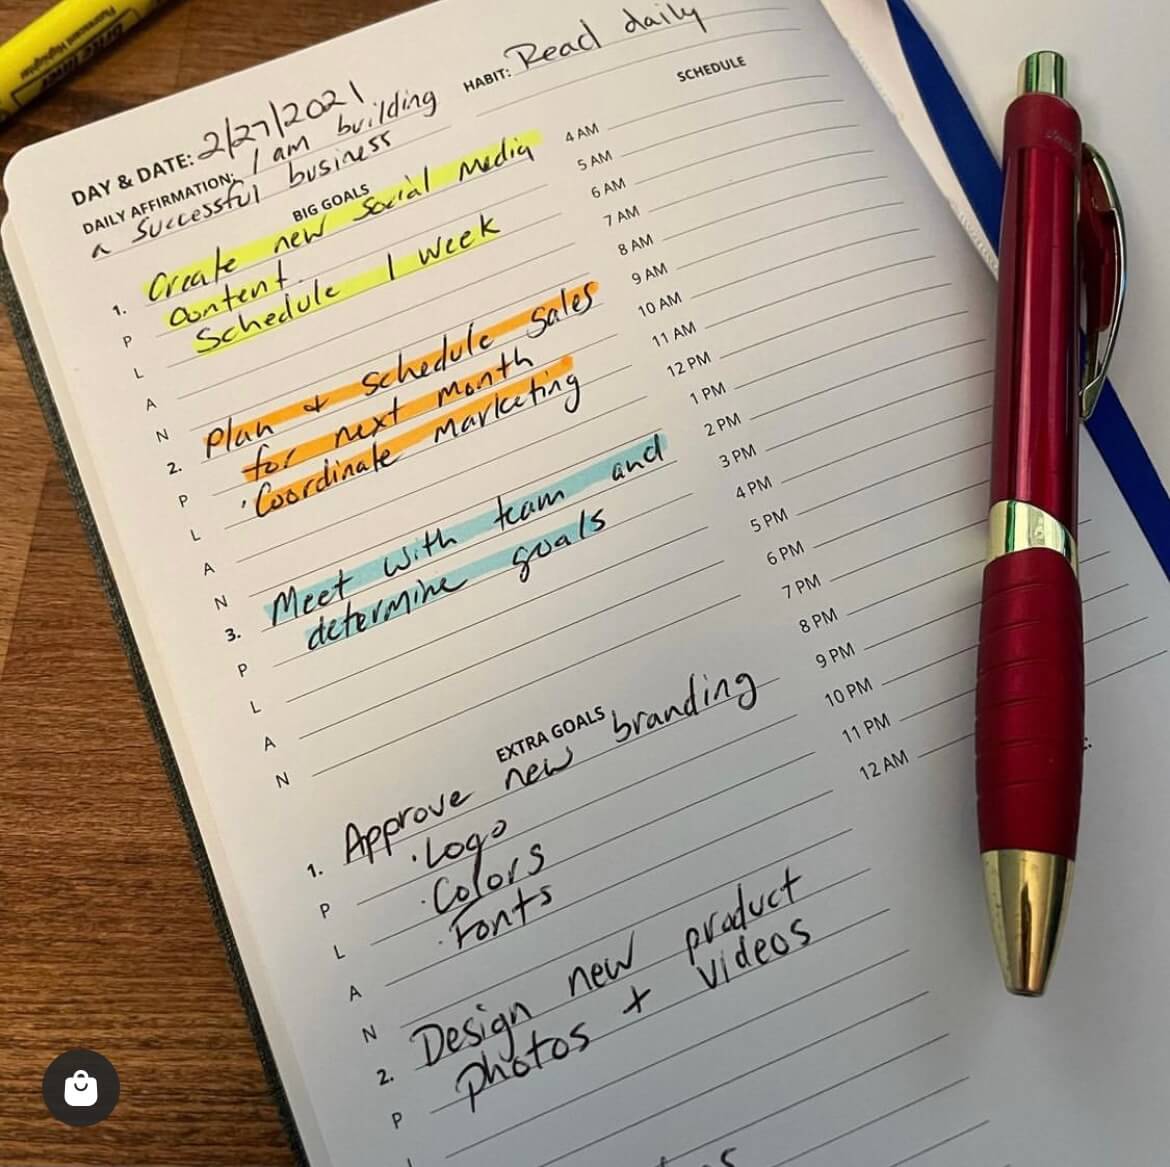 brite liner
Fluorescent Highlighter
DAY & DATE: 2/27/2021
HABIT: Read daily
DAILY AFFIRMATION: I am building
a successful business
BIG GOALS
1. Create new Social Media
P content.
L Schedule 1 week
A
N
2. Plan + Schedule Sales
P for next month
L · Coordinate marketing
A
N
3. Meet with team and
P determine goals
L
A
N
SCHEDULE
4 AM
5 AM
6 AM
7 AM
8 AM
9 AM
10 AM
11 AM
12 PM
1 PM
2 PM
3 PM
4 PM
5 PM
6 PM
7 PM
8 PM
9 PM
10 PM
11 PM
12 AM
EXTRA GOALS
1. Approve new branding
P · Logo
L · Colors
A · Fonts
N
2. Design new product
P photos + videos